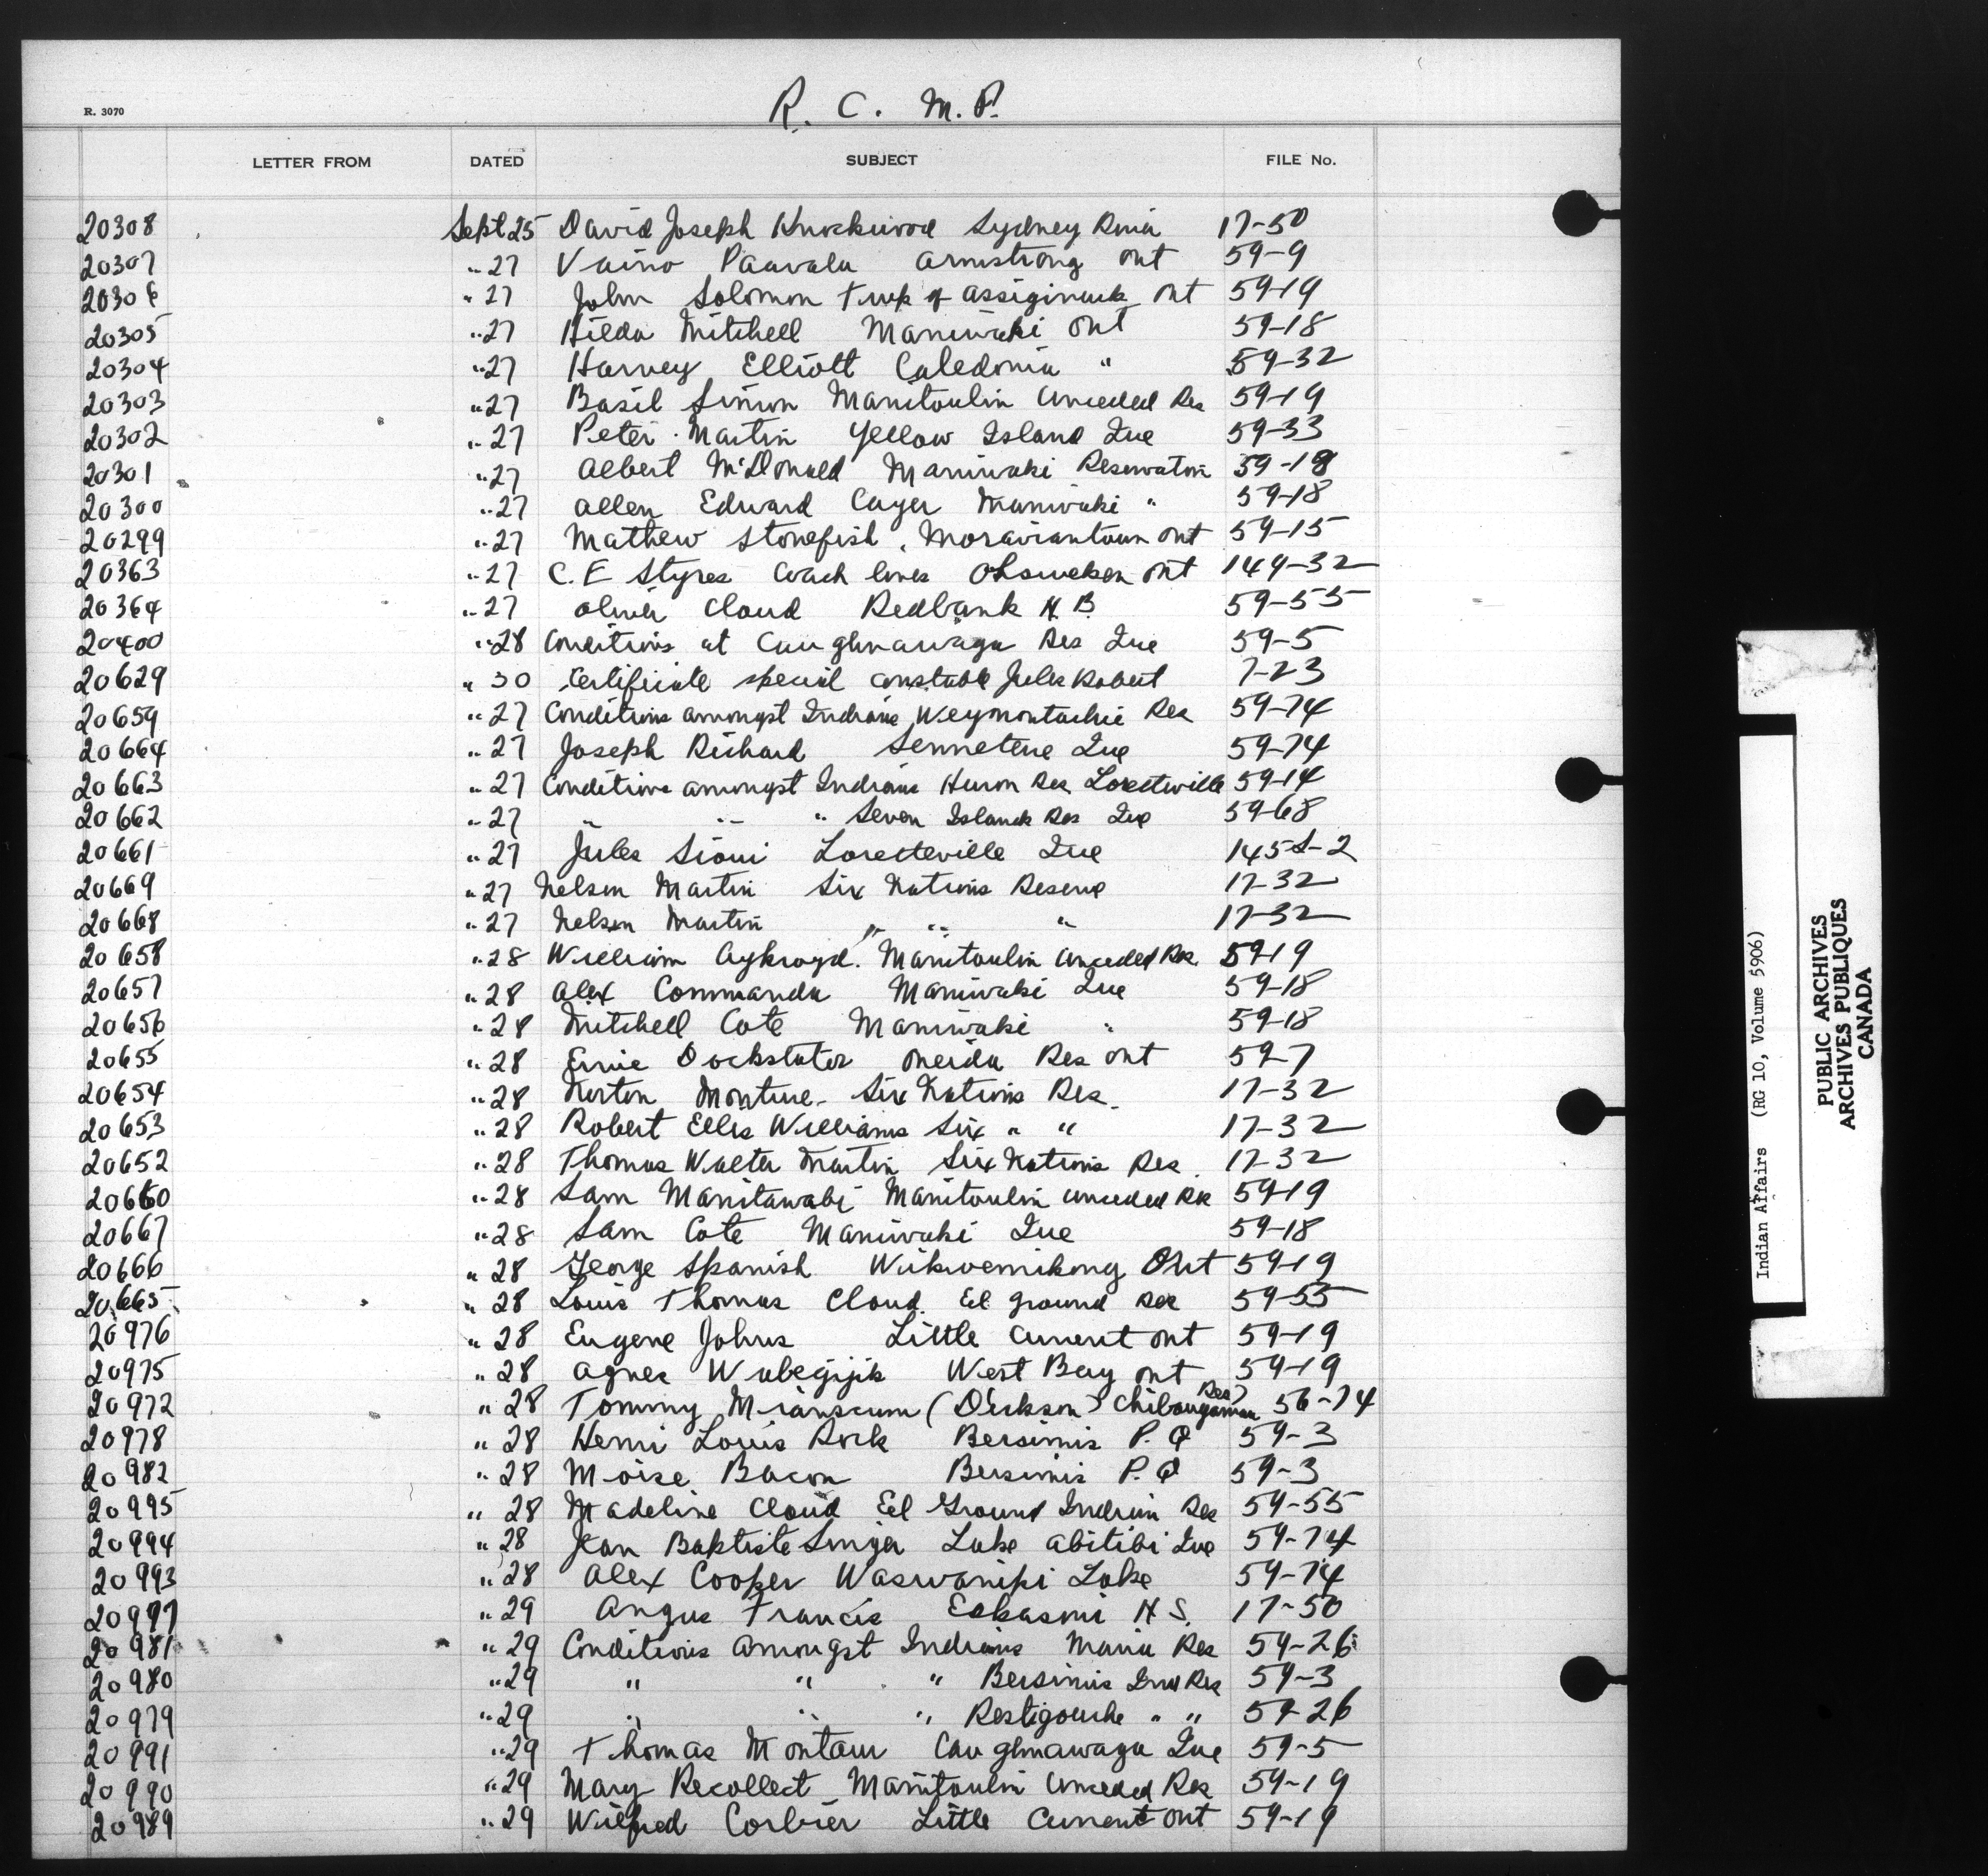 R. 3070
R. C. M. P.
LETTER FROM DATED SUBJECT FILE No.
20308 Sept 25 David Joseph Knockwood Sydney River 17-50
20307 " 27 Vaino Paavala Armstrong Ont 59-9
20306 " 27 John Solomon Twp of Assiginack Ont 59-19
20305 " 27 Hilda Mitchell Maniwaki Ont 59-18
20304 " 27 Harvey Elliott Caledonia " 59-32
20303 " 27 Basil Simon Manitoulin Unceded Res 59-19
20302 " 27 Peter Martin Yellow Island Que 59-33
20301 " 27 Albert McDonald Maniwaki Reservation 59-18
20300 " 27 Allen Edward Cayer Maniwaki " 59-18
20299 " 27 Mathew Stonefish, Moraviantown Ont 59-15
20363 " 27 C. E Styres Coach lines Ohsweken Ont 149-32
20364 " 27 Oliver Cloud Redbank N. B. 59-55
20400 " 28 Conditions at Caughnawaga Res Que 59-5
20629 " 30 Certificate special constable Jules Robert 7-23
20659 " 27 Conditions amongst Indians Weymontachie Res 59-74
20664 " 27 Joseph Richard Senneterre Que 59-74
20663 " 27 Conditions amongst Indians Huron Res Loretteville 59-14
20662 " 27 " " " Seven Islands Res Que 59-68
20661 " 27 Jules Sioui Loretteville Que 145S-2
20669 " 27 Nelson Martin Six Nations Reserve 17-32
20668 " 27 Nelson Martin " " " 17-32
20658 " 28 William Aykroyd. Manitoulin Unceded Res. 59-19
20657 " 28 Alex Commanda Maniwaki Que 59-18
20656 " 28 Mitchell Cote Maniwaki " 59-18
20655 " 28 Ernie Dockstater Oneida Res Ont 59-7
20654 " 28 Norton Monture - Six Nations Res. 17-32
20653 " 28 Robert Elles Williams Six " " 17-32
20652 " 28 Thomas Walter Martin Six Nations Res. 17-32
20660 " 28 Sam Manitawabi Manitoulin unceded Res 59-19
20667 " 28 Sam Cote Maniwaki Que 59-18
20666 " 28 George Spanish Wikwemikong Ont 59-19
20665 " 28 Louis Thomas Cloud. Eel Ground Res 59-55
20976 " 28 Eugene Johns Little Current Ont 59-19
20975 " 28 Agnes Wabegijik West Bay Ont 59-19
20972 " 28 Tommy Mianscum (Dickson) Chibougamau Res) 56-74
20978 " 28 Henri Louis Rock Bersimis P. Q 59-3
20982 " 28 Moise Bacon Bersimis P. Q 59-3
20995 " 28 Madeline Cloud Eel Ground Indian Res 59-55
20994 " 28 Jean Baptiste Lake Abitibi Que 59-74
20993 " 28 Alex Cooper Waswanipi Lake 59-74
20997 " 29 Angus Francis Eskasoni N. S. 17-50
20981 " 29 Conditions amongst Indians Maria Res 59-26
20980 " 29 " " " Bersimis Ind Res 59-3
20979 " 29 " " " Restigouche " " 59-26
20991 " 29 Thomas Montour Caughnawaga Que 59-5
20990 " 29 Mary Recollect Manitoulin Unceded Res 59-19
20989 " 29 Wilfred Corbier Little Current Ont 59-19
Indian Affairs (RG 10, Volume 5906)
PUBLIC ARCHIVES
ARCHIVES PUBLIQUES
CANADA